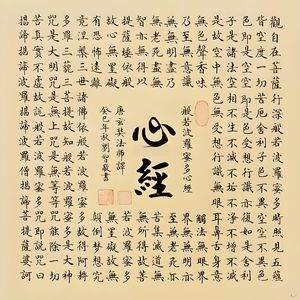 觀自在菩薩行深般若波羅蜜多時照見五蘊
皆空度一切苦厄舍利子色不異空空不異色
色即是空空即是色受想行識亦復如是舍利
子是諸法空相不生不滅不垢不淨不增不減
是故空中無色無受想行識無眼耳鼻舌身意
無色聲香味
觸法無眼界
乃至無意識
界無無明亦
無無明盡乃
至無老死亦
無老死盡無
苦集滅道無
智亦無得以
無所得故菩
提薩埵依般
若波羅蜜多
故心無罣礙
無罣礙故無
有恐怖遠離
顛倒夢想究
般若波羅蜜多心經
心經
唐玄奘法師譯
癸巳年秋劉智書
竟涅槃三世諸佛依般若波羅蜜多故得阿耨
多羅三藐三菩提故知般若波羅蜜多是大神
咒是大明咒是無上咒是無等等咒能除一切
苦真實不虛故說般若波羅蜜多咒即說咒曰
揭諦揭諦波羅揭諦波羅僧揭諦菩提薩婆訶